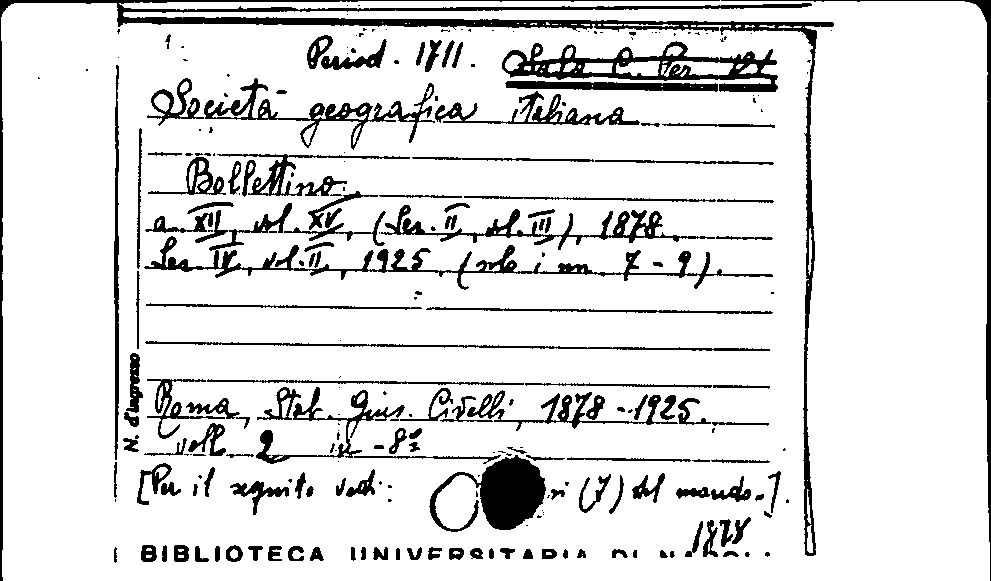 Period. 1711. Sala C. Per. 121
Società geografica italiana
Bollettino.
a. XII, vol. XV, (Ser. II, vol. III), 1878.
Ser. IV, vol. II, 1925. (solo i nn. 7-9).
N. d'ingresso
Roma, Stab. Gius. Civelli, 1878-1925.
voll. 2 in -8º
[Per il seguito vedi: (7) del mondo.].
1878
BIBLIOTECA UNIVERSITARIA DI NAPOLI